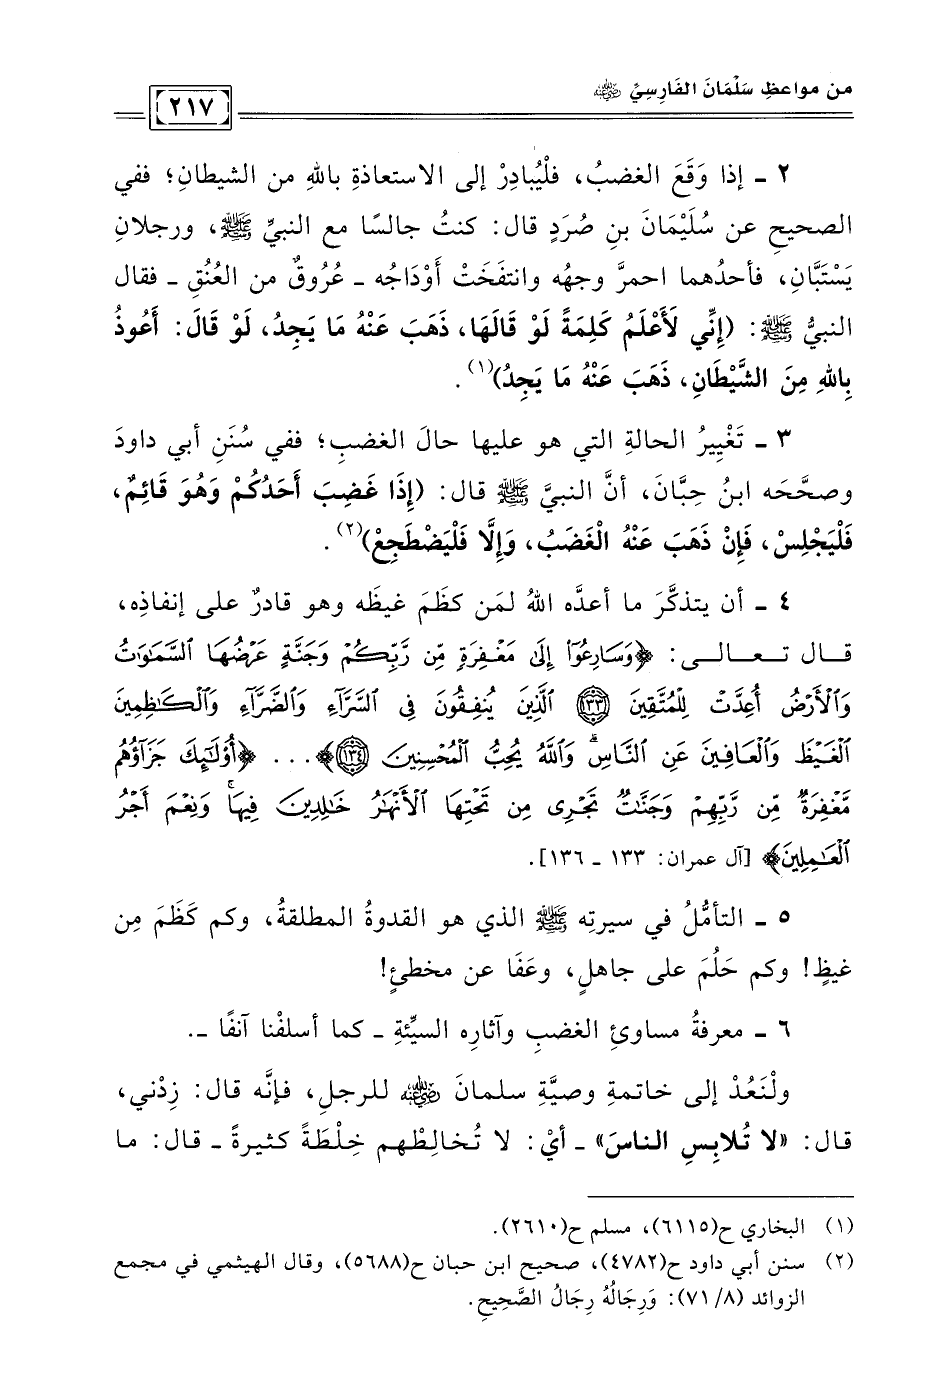 من مواعظِ سَلْمَانَ الفَارِسِيِّ ﵁
٢١٧
٢ ـ إذا وَقَعَ الغضبُ، فلْيُبادِرْ إلى الاستعاذةِ باللهِ من الشيطانِ؛ ففي
الصحيحِ عن سُلَيْمَانَ بنِ صُرَدٍ قال: كنتُ جالسًا مع النبيِّ ﷺ، ورجلانِ
يَسْتَبَّانِ، فأحدُهما احمرَّ وجهُه وانتفَخَتْ أَوْدَاجُه ـ عُرُوقٌ من العُنُقِ ـ فقال
النبيُّ ﷺ: (إِنِّي لَأَعْلَمُ كَلِمَةً لَوْ قَالَهَا، ذَهَبَ عَنْهُ مَا يَجِدُ، لَوْ قَالَ: أَعُوذُ
بِاللهِ مِنَ الشَّيْطَانِ، ذَهَبَ عَنْهُ مَا يَجِدُ)(١).
٣ ـ تَغْيِيرُ الحالةِ التي هو عليها حالَ الغضبِ؛ ففي سُنَنِ أبي داودَ
وصحَّحَه ابنُ حِبَّانَ، أنَّ النبيَّ ﷺ قال: (إِذَا غَضِبَ أَحَدُكُمْ وَهُوَ قَائِمٌ،
فَلْيَجْلِسْ، فَإِنْ ذَهَبَ عَنْهُ الْغَضَبُ، وَإِلَّا فَلْيَضْطَجِعْ)(٢).
٤ ـ أن يتذكَّرَ ما أعدَّه اللهُ لمَن كظَمَ غيظَه وهو قادرٌ على إنفاذِه،
قـال تـعـالـى: ﴿وَسَارِعُوٓاْ إِلَىٰ مَغْفِرَةٍ مِّن رَّبِّكُمْ وَجَنَّةٍ عَرْضُهَا ٱلسَّمَٰوَٰتُ
وَٱلْأَرْضُ أُعِدَّتْ لِلْمُتَّقِينَ ١٣٣ ٱلَّذِينَ يُنفِقُونَ فِي ٱلسَّرَّآءِ وَٱلضَّرَّآءِ وَٱلْكَٰظِمِينَ
ٱلْغَيْظَ وَٱلْعَافِينَ عَنِ ٱلنَّاسِۗ وَٱللَّهُ يُحِبُّ ٱلْمُحْسِنِينَ ١٣٤﴾... ﴿أُوْلَٰٓئِكَ جَزَآؤُهُم
مَّغْفِرَةٌ مِّن رَّبِّهِمْ وَجَنَّٰتٌ تَجْرِي مِن تَحْتِهَا ٱلْأَنْهَٰرُ خَٰلِدِينَ فِيهَاۚ وَنِعْمَ أَجْرُ
ٱلْعَٰمِلِينَ﴾ [آل عمران: ١٣٣ ـ ١٣٦].
٥ ـ التأمُّلُ في سيرتِه ﷺ الذي هو القدوةُ المطلقةُ، وكم كَظَمَ مِن
غيظٍ! وكم حَلُمَ على جاهلٍ، وعَفَا عن مخطئٍ!
٦ ـ معرفةُ مساوئِ الغضبِ وآثارِه السيِّئةِ ـ كما أسلفْنا آنفًا ـ.
ولْنَعُدْ إلى خاتمةِ وصيَّةِ سلمانَ ﵁ للرجلِ، فإنَّه قال: زِدْني،
قال: «لا تُلابِسِ الناسَ» ـ أيْ: لا تُخالِطْهم خِلْطَةً كثيرةً ـ قال: ما
(١) البخاري ح(٦١١٥)، مسلم ح(٢٦١٠).
(٢) سنن أبي داود ح(٤٧٨٢)، صحيح ابن حبان ح(٥٦٨٨)، وقال الهيثمي في مجمع
الزوائد (٧١/٨): وَرِجَالُهُ رِجَالُ الصَّحِيحِ.